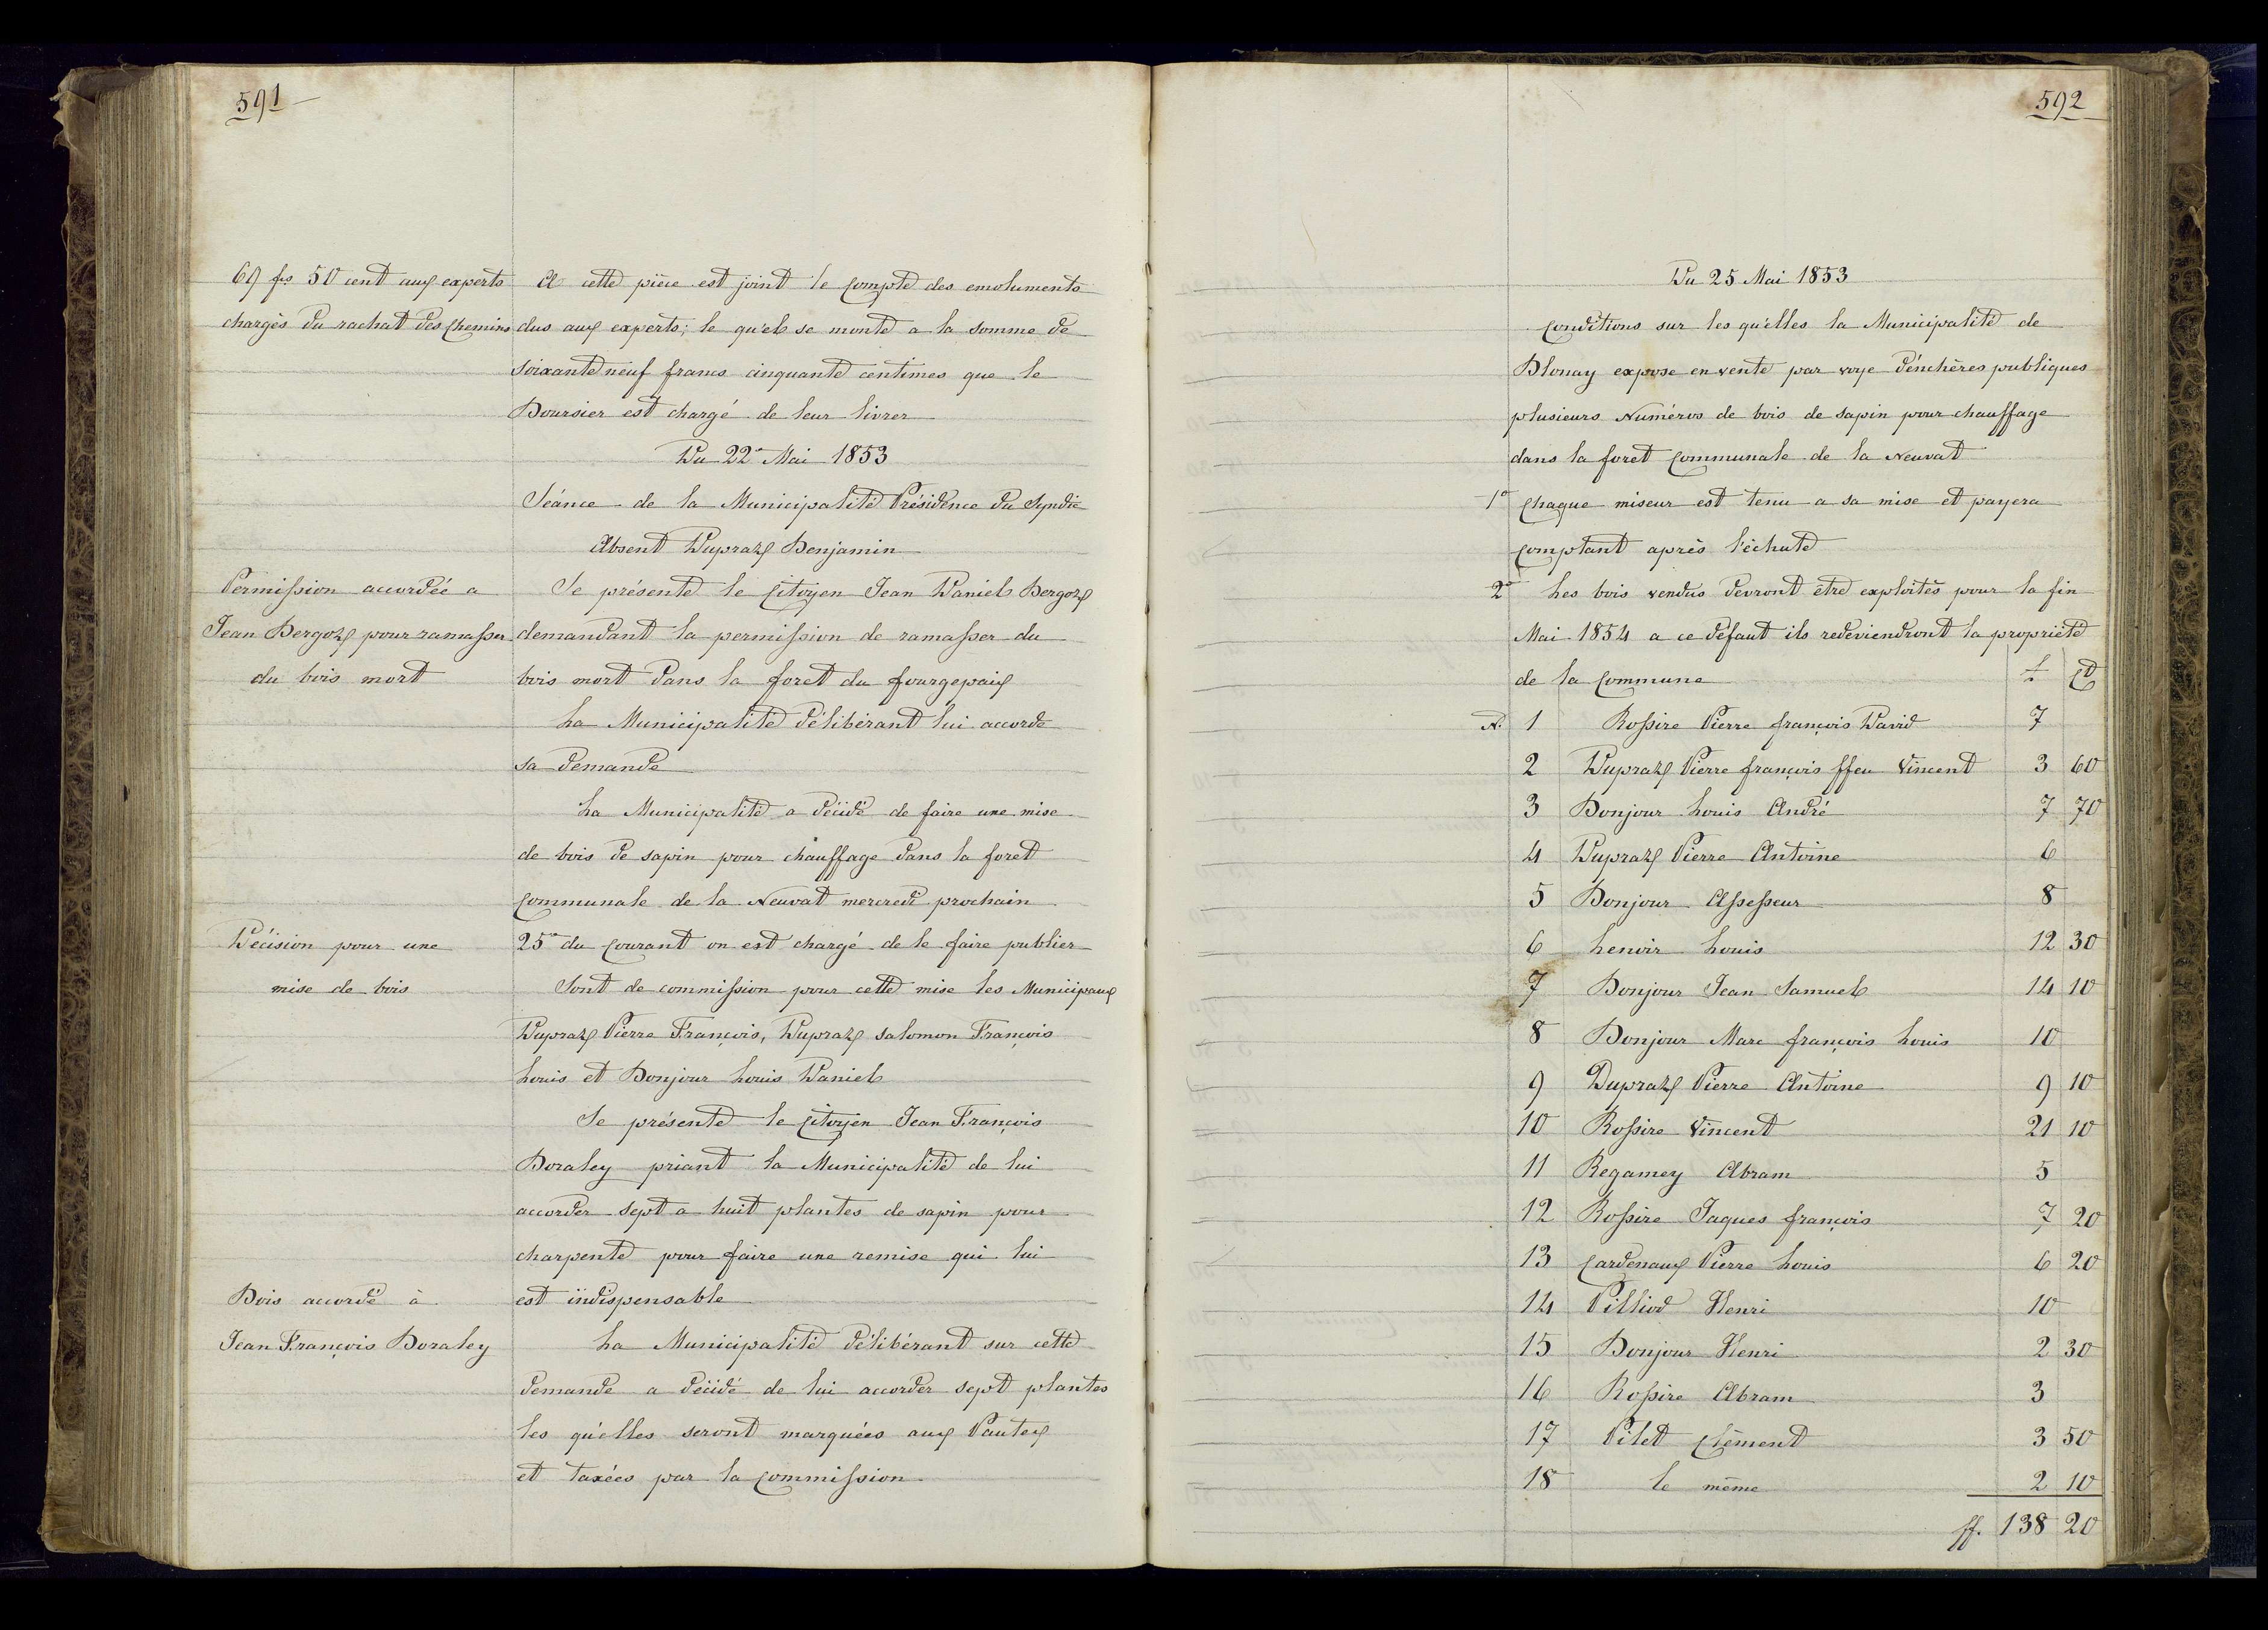 591
69 frs 50 cent aux experts
chargés du rachat des Chemins
A cette pièce est joint le Compte des emoluments
dus aux experts; le qu'el se monte a la somme de
soixante neuf francs cinquante centimes que le
Boursier est chargé de leur livrer
Du 22e Mai 1853
Séance de la Municipalité Présidence du Syndic
Absent Dupraz Benjamin
Permission accordée a
Jean Bergoz pour ramasser
du bois mort
Se présente le Citoyen Jean Daniel Bergoz
demandant la permission de ramasser du
bois mort dans la foret du fourgepaix
La Municipalité délibérant lui accorde
sa demande
La Municipalité a décidé de faire une mise
de bois de sapin pour chauffage dans la foret
Communale de la Neuvat mercredi prochain
Décision pour une
mise de bois
25e du Courant on est chargé de le faire publier
Sont de commission pour cette mise les Municipaux
Dupraz Pierre François, Dupraz salomon François
Louis et Bonjour Louis Daniel
Se présente le Citoyen Jean François
Boraley priant la Municipalité de lui
accorder sept a huit plantes de sapin pour
charpente pour faire une remise qui lui
Bois accordé à
Jean François Boraley
est indispensable
La Municipalité délibérant sur cette
demande a décidé de lui accorder sept plantes
les qu'elles seront marquées aux Pautex
et taxées par la Commission
592
Du 25 Mai 1853
Conditions sur les qu'elles la Municipalité de
Blonay expose en vente par voye d'enchères publiques
plusieurs Numéros de bois de sapin pour chauffage
dans la foret Communale de la Neuvat
1o Chaque miseur est tenu a sa mise et payera
Comptant après l'échute
2o Les bois vendus devront être exploités pour la fin
Mai 1854 a ce défaut ils redeviendront la propriété
de la Commune f Ct
N. 1 Rossire Pierre françois David 7
2 Dupraz Pierre françois ffeu Vincent 3 60
3 Bonjour Louis André 7 70
4 Dupraz Pierre Antoine 6
5 Bonjour Assesseur 8
6 Lenoir Louis 12 30
7 Bonjour Jean Samuel 14 10
8 Bonjour Marc françois Louis 10
9 Dupraz Pierre Antoine 9 10
10 Rossire Vincent 21 10
11 Regamey Abram 5
12 Rossire Jaques françois 7 20
13 Cardenaux Pierre Louis 6 20
14 Pilliod Henri 10
15 Bonjour Henri 2 30
16 Rossire Abram 3
17 Pilet Clément 3 50
18 le même 2 10
ff. 138 20